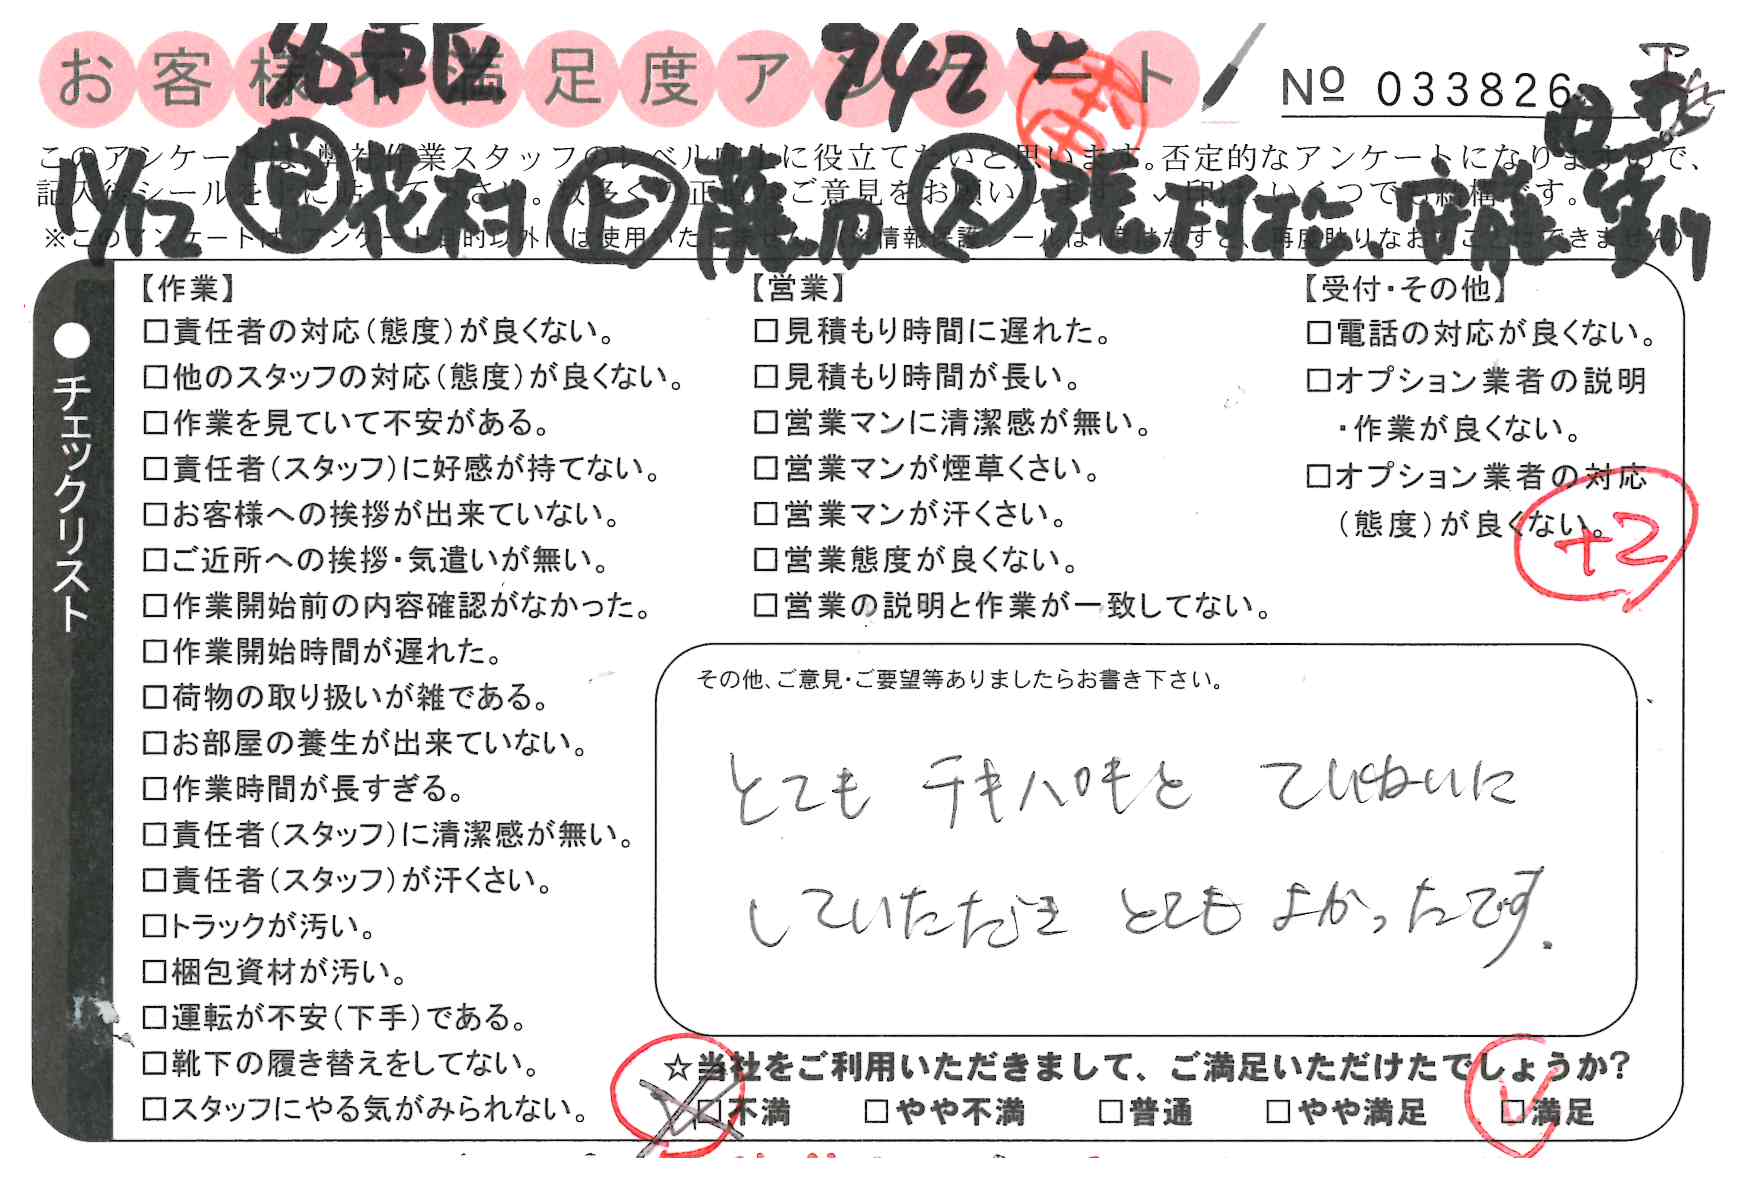 お客様不満足度アンケート
No 033826
742
このアンケートは、弊社作業スタッフのレベル向上に役立てたいと思います。否定的なアンケートになりますので、
記入後シールを 貼って下さい。数多くの正 なご意見をお願いします。✓印は、いくつでも結構です。
11/12 花村 張 村松、安藤
※このアンケートは、アンケート目的以外には使用いたしません。(※情報保護シールは1度はがすと、再度貼りなおすことはできません)
チェックリスト
【作業】
□責任者の対応(態度)が良くない。
□他のスタッフの対応(態度)が良くない。
□作業を見ていて不安がある。
□責任者(スタッフ)に好感が持てない。
□お客様への挨拶が出来ていない。
□ご近所への挨拶・気遣いが無い。
□作業開始前の内容確認がなかった。
□作業開始時間が遅れた。
□荷物の取り扱いが雑である。
□お部屋の養生が出来ていない。
□作業時間が長すぎる。
□責任者(スタッフ)に清潔感が無い。
□責任者(スタッフ)が汗くさい。
□トラックが汚い。
□梱包資材が汚い。
□運転が不安(下手)である。
□靴下の履き替えをしてない。
□スタッフにやる気がみられない。
【営業】
□見積もり時間に遅れた。
□見積もり時間が長い。
□営業マンに清潔感が無い。
□営業マンが煙草くさい。
□営業マンが汗くさい。
□営業態度が良くない。
□営業の説明と作業が一致してない。
【受付・その他】
□電話の対応が良くない。
□オプション業者の説明
・作業が良くない。
□オプション業者の対応
(態度)が良くない。
+2
その他、ご意見・ご要望等ありましたらお書き下さい。
とても テキパキと ていねいに
していただき とても よかったです.
☆当社をご利用いただきまして、ご満足いただけたでしょうか?
□不満 □やや不満 □普通 □やや満足 □満足